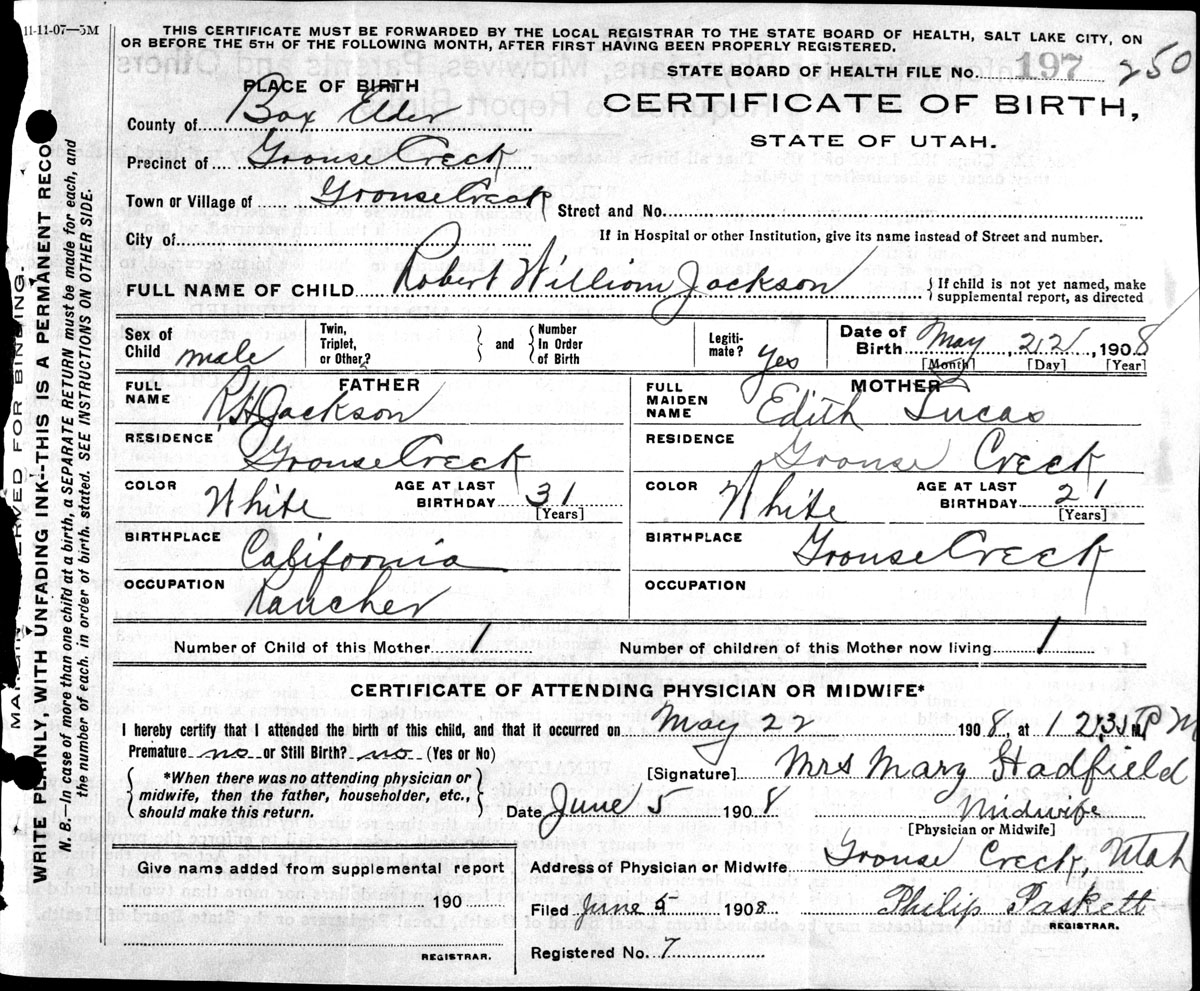 11-11-07—5M
THIS CERTIFICATE MUST BE FORWARDED BY THE LOCAL REGISTRAR TO THE STATE BOARD OF HEALTH, SALT LAKE CITY, ON
OR BEFORE THE 5TH OF THE FOLLOWING MONTH, AFTER FIRST HAVING BEEN PROPERLY REGISTERED.
STATE BOARD OF HEALTH FILE No. 197 250
PLACE OF BIRTH
CERTIFICATE OF BIRTH,
STATE OF UTAH.
County of Box Elder
Precinct of Grouse Creek
Town or Village of Grouse Creek
Street and No.
City of
If in Hospital or other Institution, give its name instead of Street and number.
FULL NAME OF CHILD Robert William Jackson { If child is not yet named, make supplemental report, as directed
Sex of Child male
Twin, Triplet, or Other? } and { Number In Order of Birth
Legiti-mate? yes
Date of Birth May 22, 1908
[Month] [Day] [Year]
FATHER
FULL NAME R.H. Jackson
RESIDENCE Grouse Creek
COLOR White AGE AT LAST BIRTHDAY 31 [Years]
BIRTHPLACE California
OCCUPATION Rancher
MOTHER
FULL MAIDEN NAME Edith Lucas
RESIDENCE Grouse Creek
COLOR White AGE AT LAST BIRTHDAY 21 [Years]
BIRTHPLACE Grouse Creek
OCCUPATION
Number of Child of this Mother 1 Number of children of this Mother now living 1
CERTIFICATE OF ATTENDING PHYSICIAN OR MIDWIFE*
I hereby certify that I attended the birth of this child, and that it occurred on May 22 1908, at 12:35 P M
Premature no or Still Birth? no (Yes or No)
{ *When there was no attending physician or midwife, then the father, householder, etc., should make this return. }
[Signature] Mrs Mary Hadfield
Date June 5 1908 Midwife
[Physician or Midwife]
Give name added from supplemental report
190
REGISTRAR.
Address of Physician or Midwife Grouse Creek, Utah
Filed June 5 1908 Philip Paskett
REGISTRAR.
Registered No. 7
WRITE PLAINLY, WITH UNFADING INK--THIS IS A PERMANENT RECO
N. B.—In case of more than one child at a birth, a SEPARATE RETURN must be made for each, and
the number of each, in order of birth, stated. SEE INSTRUCTIONS ON OTHER SIDE.